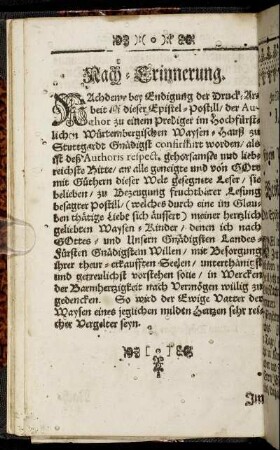 Nach-Erinnerung.
NAchdeme bey Endigung der Druck-Ar-
beit dieser Epistel-Postill/ der Au-
thor zu einem Prediger im Hochfürst-
lichen Würtembergischen Waysen-Hauß zu
Stuttgardt Gnädigst confirmirt worden/ als
ist deß Authoris respect. gehorsamste und liebe
reichste Bitte/ an alle geneigte und von GOtt
mit Güthern dieser Welt gesegnete Leser/ sie
belieben/ zu Bezeugung fruchtbarer Lesung
besagter Postill/ (welches durch eine im Glau-
ben thätige Liebe sich äussert) meiner hertzlich
geliebten Waysen-Kinder/ denen ich nach
GOttes/ und Unsers Gnädigsten Landes-
Fürsten Gnädigstem Willen/ mit Besorgung
ihrer theur-erkaufften Seelen/ unterthänigst
und getreulichst vorstehen solle/ in Wercken
der Barmhertzigkeit nach Vermögen willig zu
gedencken. So wird der Ewige Vatter der
Waysen eines jeglichen milden Hertzen sehr rei-
cher Vergelter seyn.